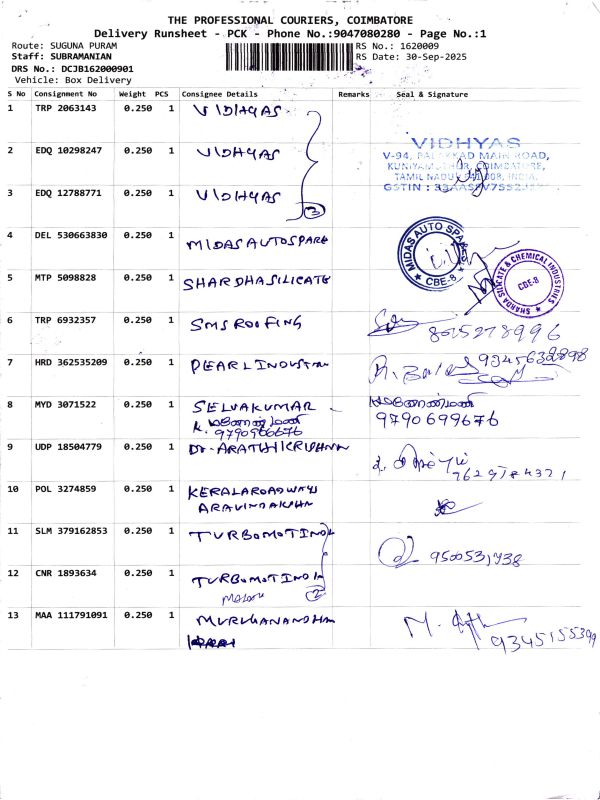 THE PROFESSIONAL COURIERS, COIMBATORE
Delivery Runsheet - PCK - Phone No.:9047080280 - Page No.:1
Route: SUGUNA PURAM
RS No.: 1620009
Staff: SUBRAMANIAN
RS Date: 30-Sep-2025
DRS No.: DCJB162000901
Vehicle: Box Delivery
S No Consignment No Weight PCS Consignee Details Remarks Seal & Signature
1 TRP 2063143 0.250 1 VIDHYAS
2 EDQ 10298247 0.250 1 VIDHYAS
VIDHYAS
V-94, PALAKKAD MAIN ROAD,
KUNIYAMUTHUR, COIMBATORE,
TAMIL NADU 641 008, INDIA.
GSTIN :
3 EDQ 12788771 0.250 1 VIDHYAS
3
4 DEL 530663830 0.250 1 MIDAS AUTOSPARE
MIDAS AUTO SPARES
★ CBE-8 ★
5 MTP 5098828 0.250 1 SHARDHASILICATE
SHARDA SILICATE & CHEMICAL INDUSTRIES
CBE-8
6 TRP 6932357 0.250 1 SMS ROOFING
8015278996
7 HRD 362535209 0.250 1 PEARL INDUSTRI
9345632898
8 MYD 3071522 0.250 1 SELVAKUMAR
9790699676
9790966676
9 UDP 18504779 0.250 1 Dr. ARATHI KRISHNAN
7629784321
10 POL 3274859 0.250 1 KERALAROADWAYS
ARAVINDAKSHN
11 SLM 379162853 0.250 1 TURBOMOTINDI
12 CNR 1893634 0.250 1 TURBOMOTINDIA
2
13 MAA 111791091 0.250 1 MURUGANANDHAM
9345155399